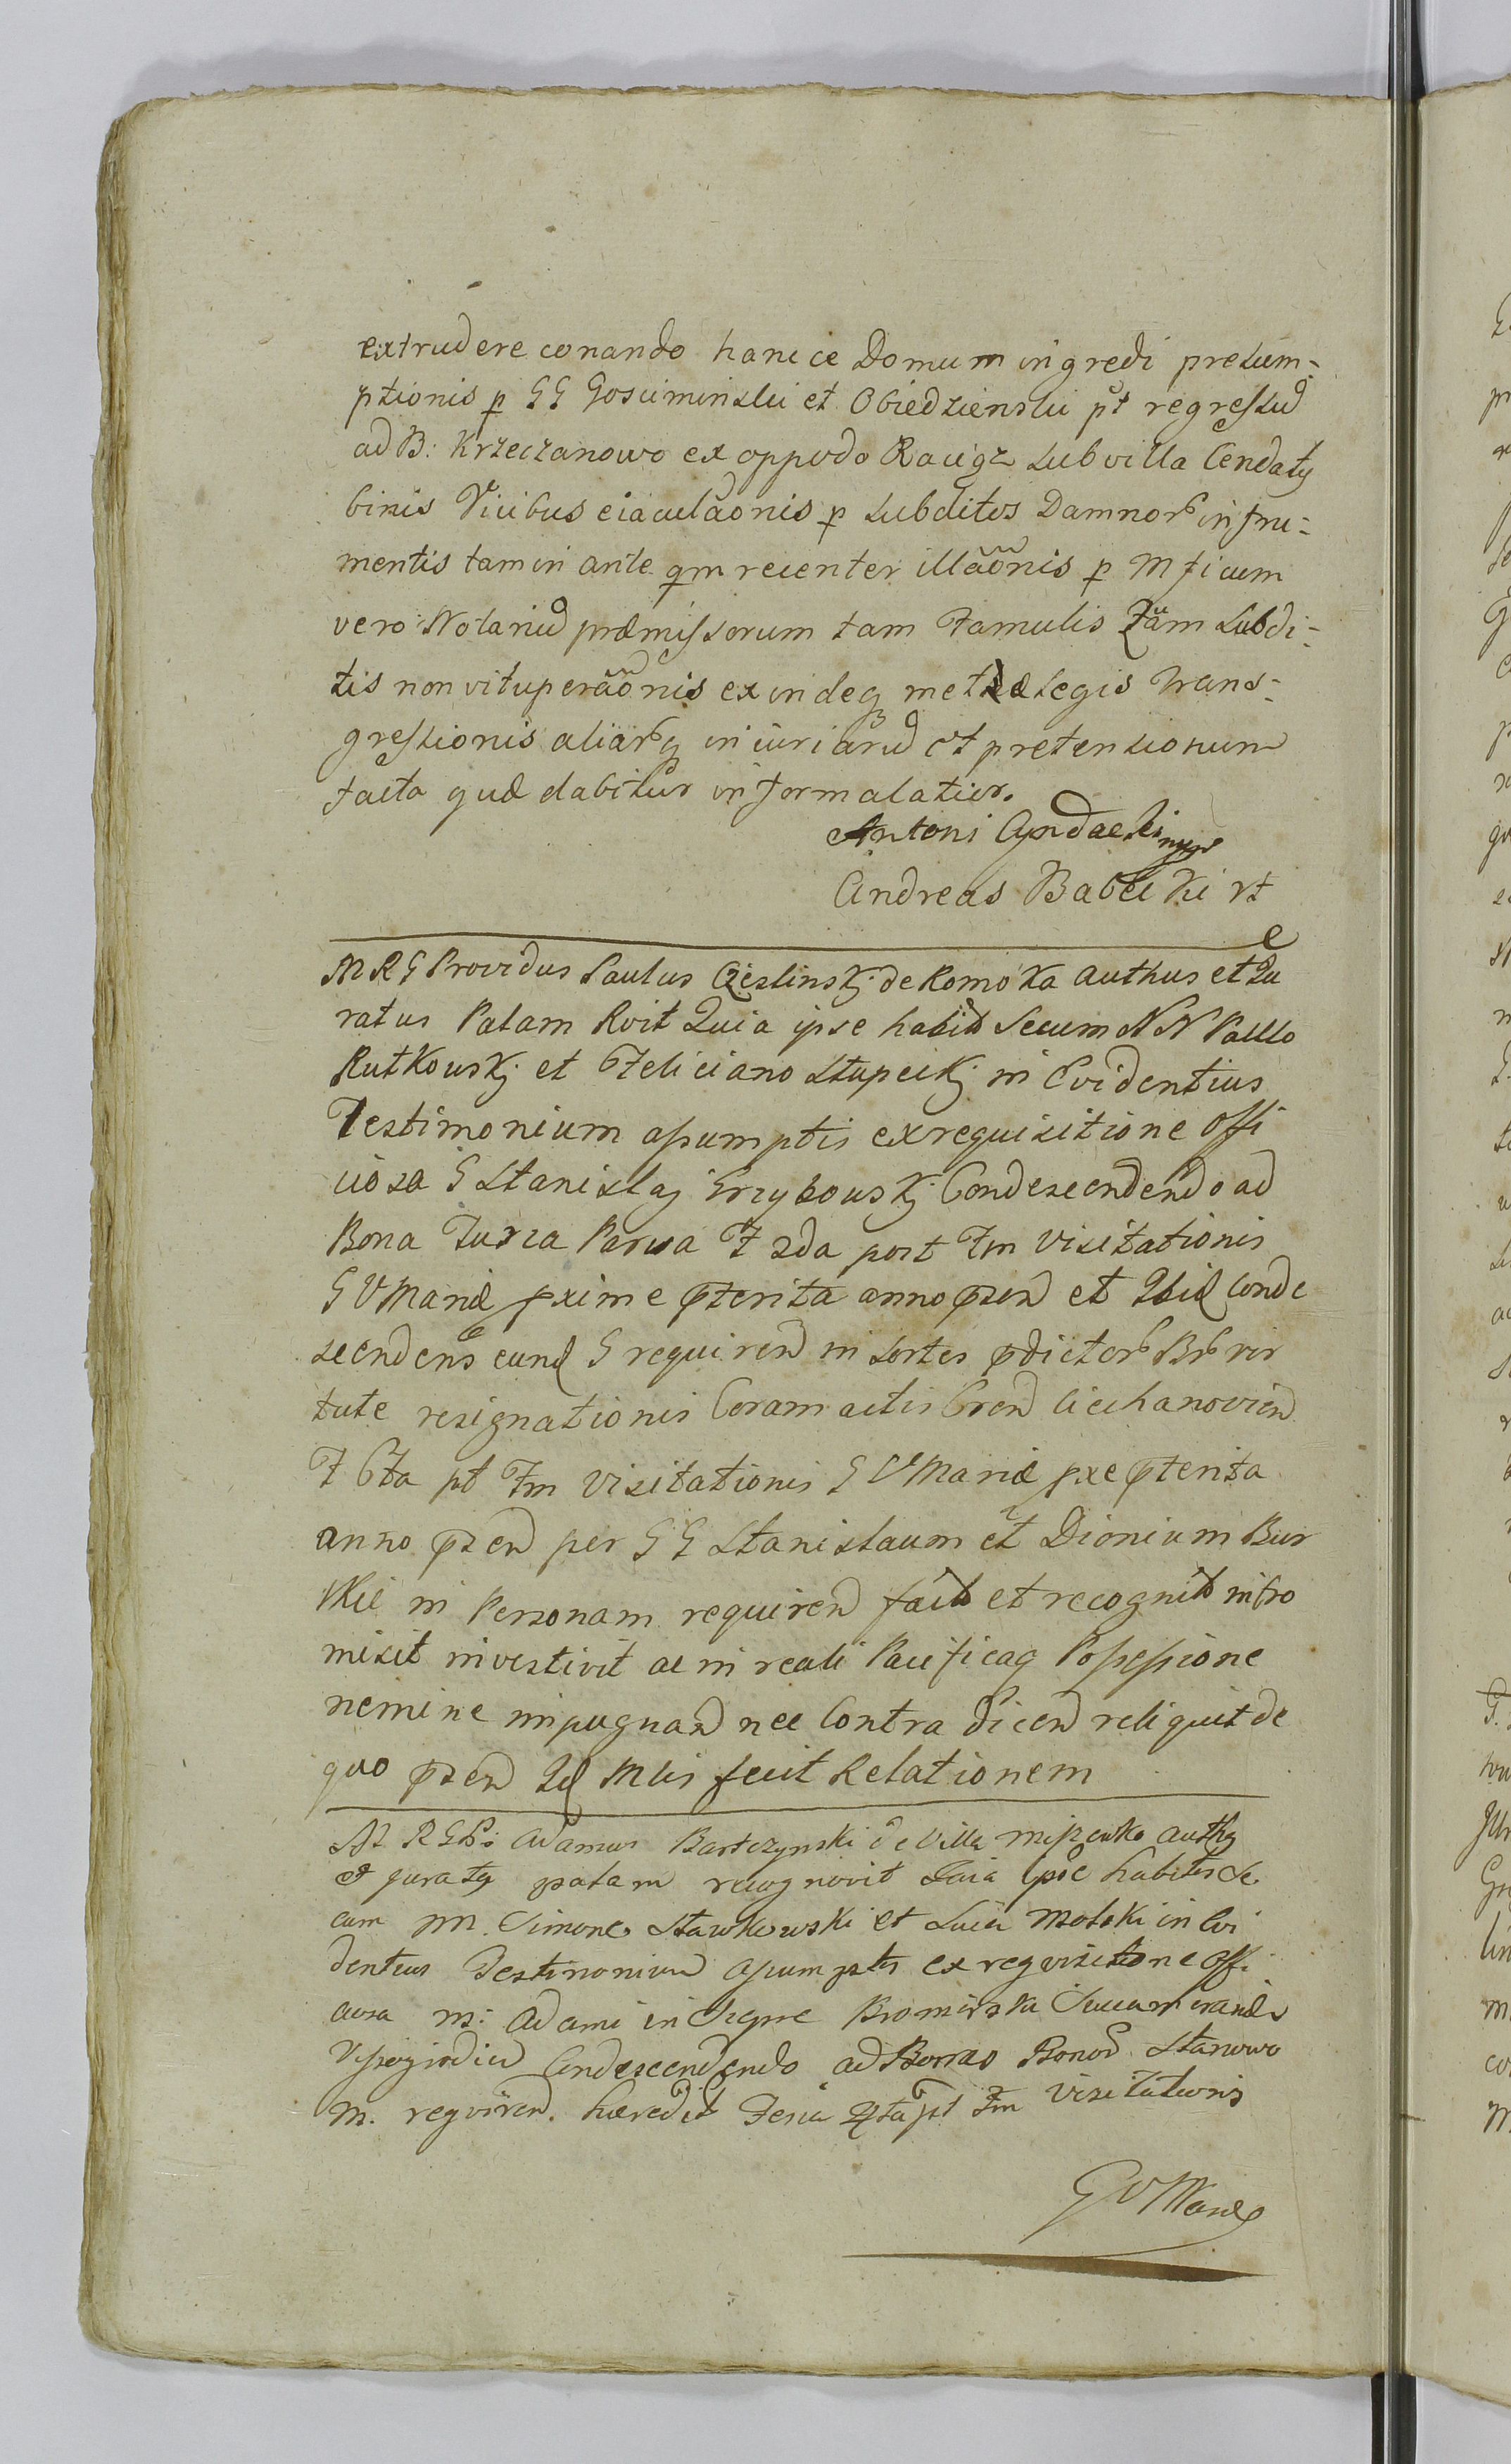 extrudere conando hancce Domum ingredi presum=
ptionis p GG Gosciminskii et Obiedzienskii pt regressu
ad B: Krzeczanowo ex oppodo Raciąz sub villa Cendaty
binis Vicibus eiaculaonis p subditos Damnor in fru=
mentis tam in ante qm recenter illaonis p Mficum
vero Notariu præmissorum tam Famulis Qam subdi=
tis non vituperaonis exindeq metæ legis trans=
gressionis aliarq iniuriaru et pretensionum
facta quæ dabitur in forma latior.
Antoni
Andreas Babecki rt
M R G Providus Paulus Cieslinskj de Komoka authus et Iu
ratus Palam Rvit Quia ipse habit secum N N Paulo
Rutkouskj et Feliciano Stupeckj in Evidentius
Testimonium assumptis ex requisitione offi
ciosa G Stanislaj Grzybouskj Condescendendo ad
Bona Turza Parva F 2da post Fm Visitationis
G V Mariæ pxime pterita anno psen et Ibid conde
scendens eund G requiren in sortes pdictor Br vir
tute resignationis Coram actis Cren Ciechanovien
F 6ta pt Fm Visitationis G V Mariæ pxe pterita
anno psen per G G Stanislaum et Dionium Bur
skie in Personam requiren fact et recognit intro
misit investivit ac in reali Pacificaq Possessione
nemine impugnan nec Contra dicen reliquit de
quo psen Id Mlis fecit Relationem
M R G P: Adamus Bartczynski de Villa authg
et juratg palam recognovit Quia ipse habitis se
cum nn. Simone Stawkowski et Luca Molski in Evi
dentius Testimonium assumptis ex reqvisitione offi
ciosa m: Adami in Kromirski Succamerandi
Condescendendo ad Bona Bonor Stanowo
m. reqviren. hæredit Feria 4ta pt Fm Visitationis
G V Mariæ